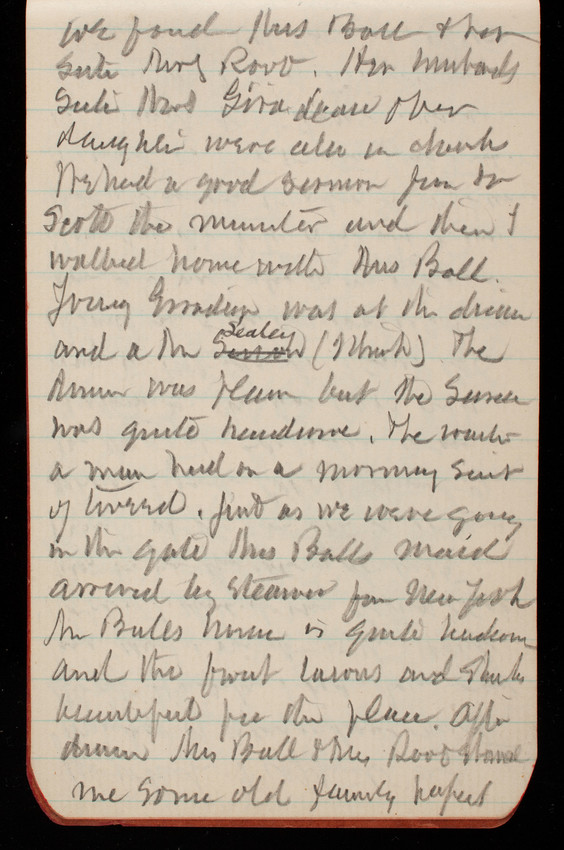 we found Mrs Ball & her
sister Mrs Root. Her husbands
sister Mrs Giraudeau & her
daughter were also in church
We had a good sermon from Dr
Scott the minister and then I
walked home with Mrs Ball.
Young was at the dinner
and a Mr Sealey (I think) The
dinner was plain but the Service
was quite handsome. The waiter
a man had on a morning suit
of tweed. Just as we were going
in the gate Mrs Balls maid
arrived by steamer from New York
Mr Balls house is quite handsome
and the front lawns and shrubs
beautiful for the place. After
dinner Mrs Ball & Mrs Root showed
me some old family